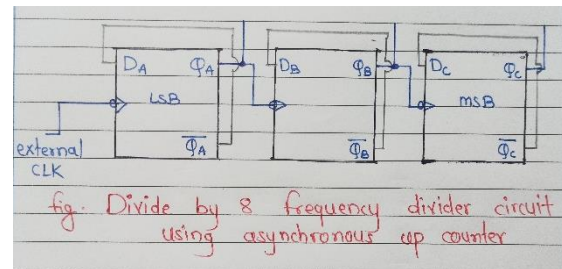 DA QA DB QB DC QC
LSB MSB
Q̅A Q̅B Q̅C
external
CLK
fig. Divide by 8 frequency divider circuit
using asynchronous up counter